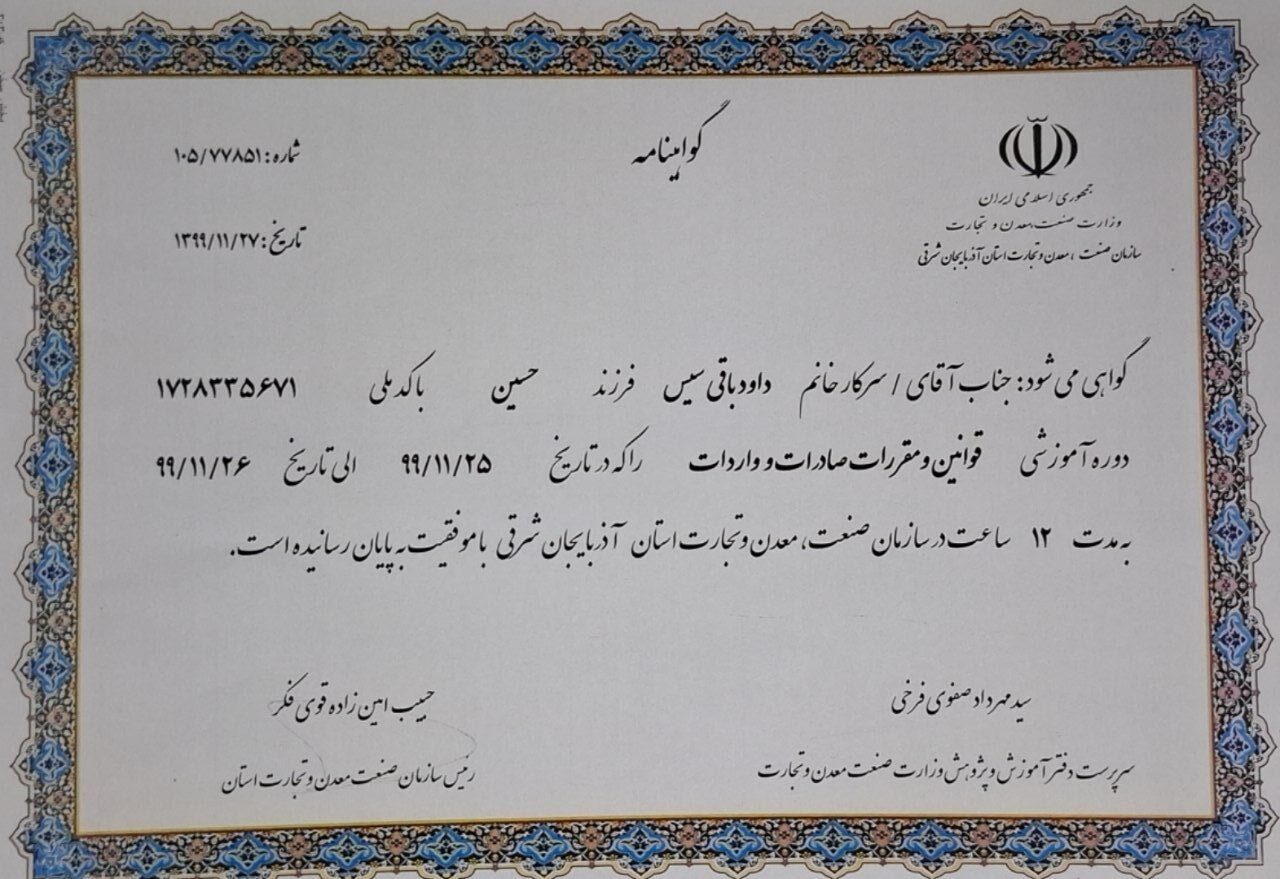 گواهینامه
جمهوری اسلامی ایران
وزارت صنعت، معدن و تجارت
سازمان صنعت، معدن و تجارت استان آذربایجان شرقی
شماره: ۱۰۵/۷۷۸۵۱
تاریخ: ۱۳۹۹/۱۱/۲۷
گواهی می شود: جناب آقای / سرکار خانم داود باقی سیس فرزند حسین با کد ملی ۱۷۲۸۳۳۵۶۷۱
دوره آموزشی قوانین و مقررات صادرات و واردات را که در تاریخ ۹۹/۱۱/۲۵ الی تاریخ ۹۹/۱۱/۲۶
به مدت ۱۲ ساعت در سازمان صنعت، معدن و تجارت استان آذربایجان شرقی با موفقیت به پایان رسانیده است.
سید مهرداد صفوی فرخی
سرپرست دفتر آموزش و پژوهش وزارت صنعت معدن و تجارت
حبیب امین زاده قوی فکر
رئیس سازمان صنعت معدن و تجارت استان